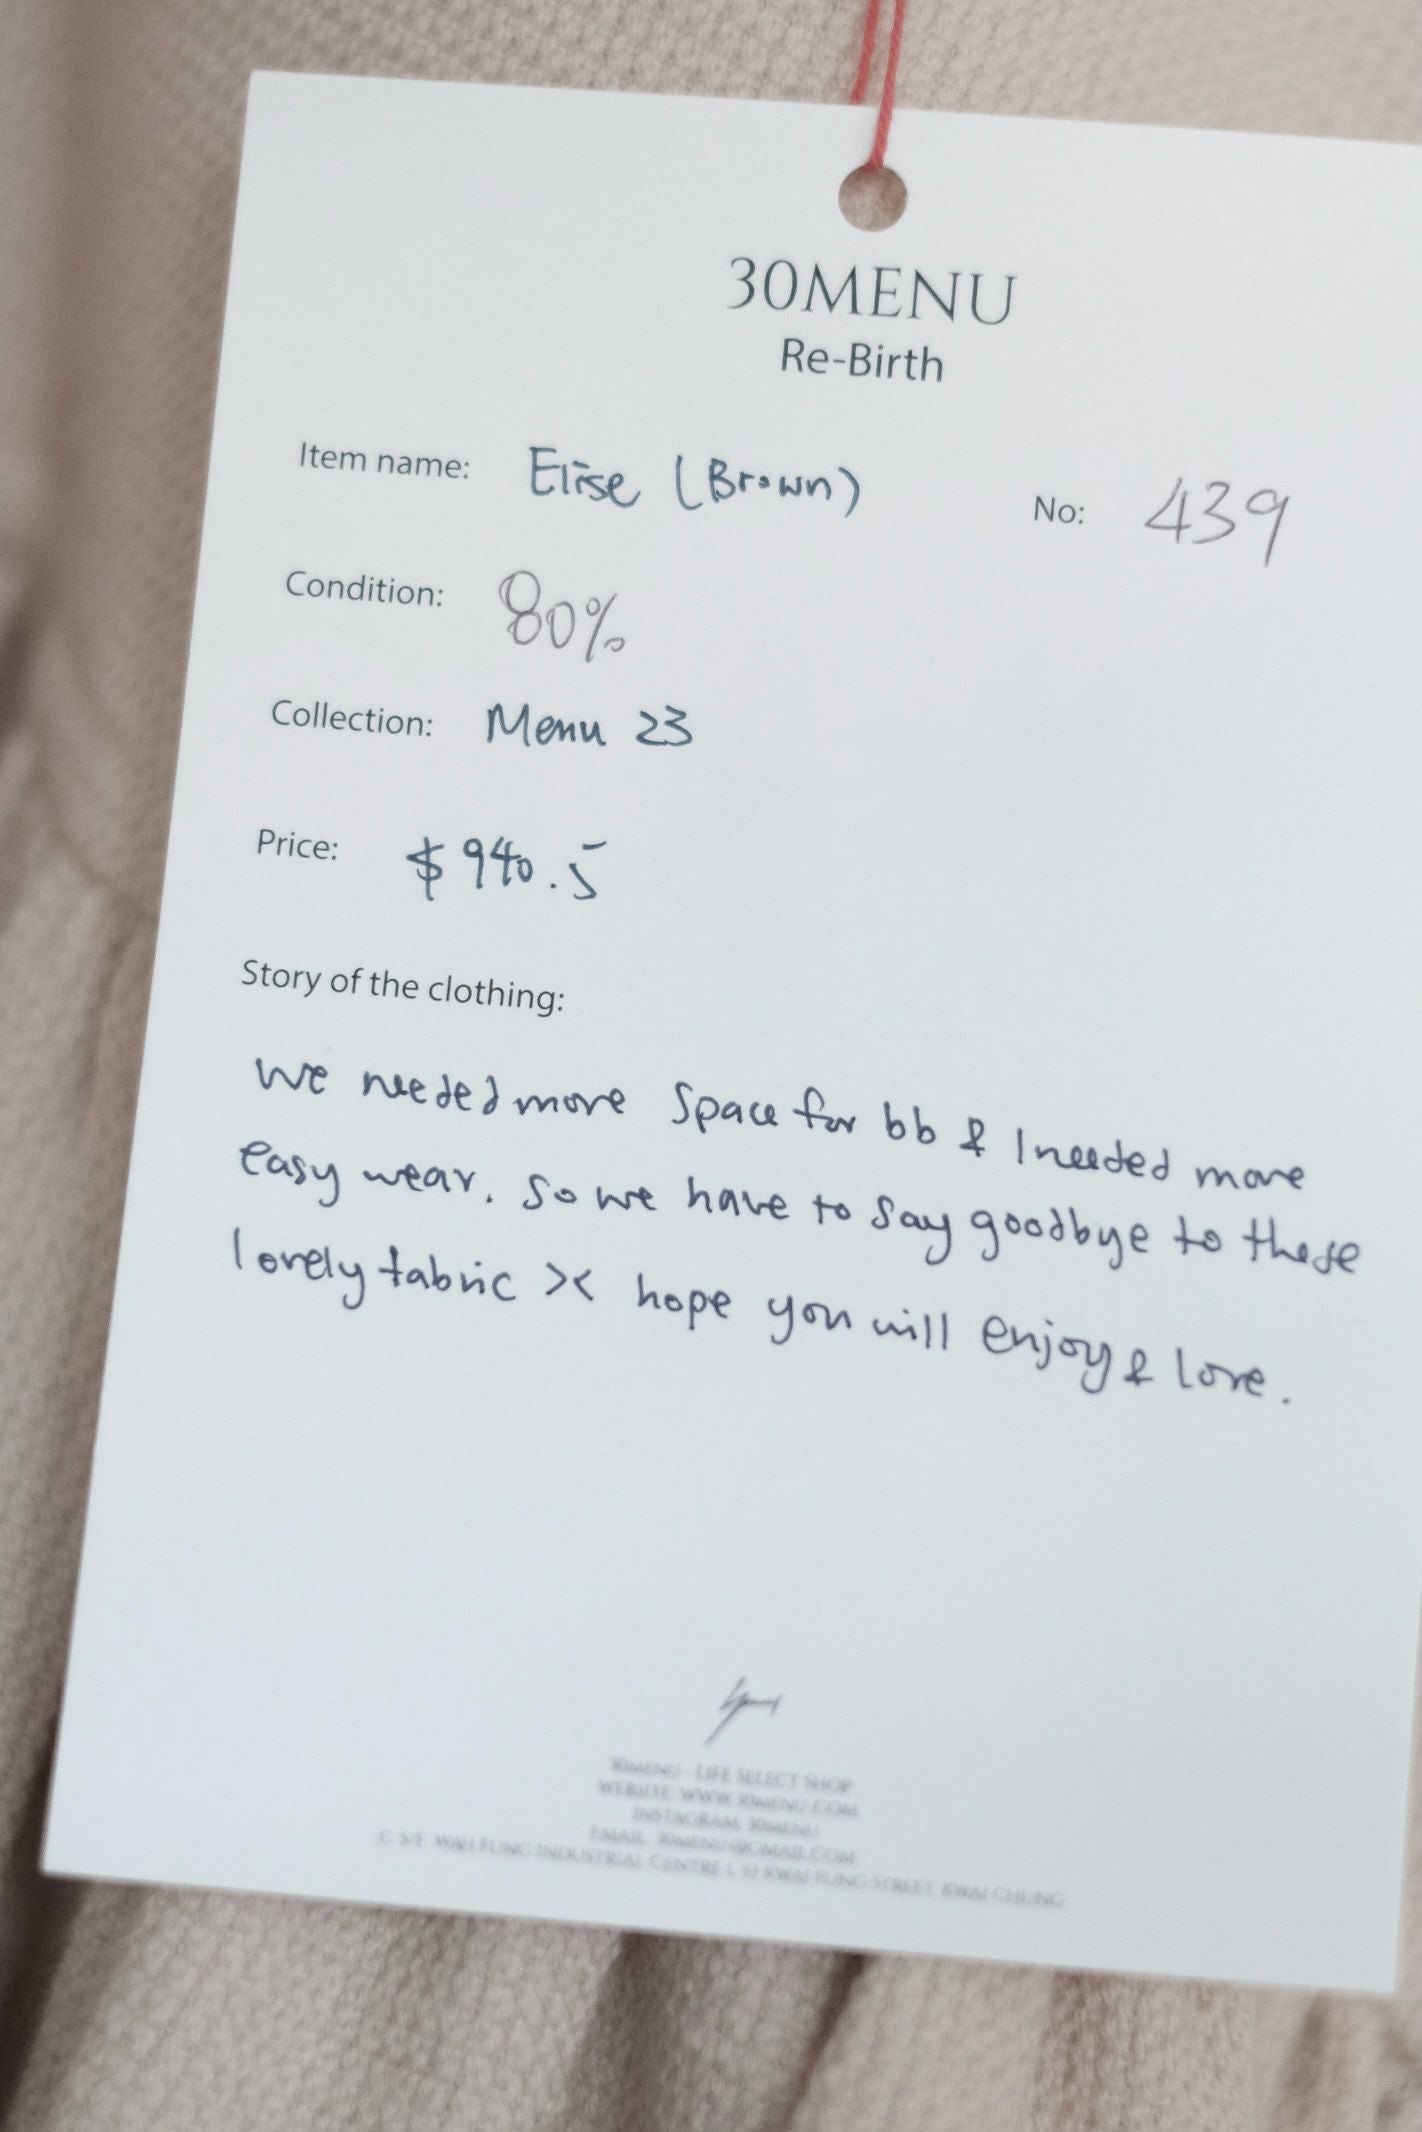 30MENU
Re-Birth
Item name: Elise (Brown) No: 439
Condition: 80%
Collection: Menu 23
Price: $940.5
Story of the clothing:
We needed more space for bb & I needed more
easy wear. So we have to say goodbye to these
lovely fabric >< hope you will enjoy & love.
30MENU - LIFE SELECT SHOP
WEBSITE: WWW.30MENU.COM
INSTAGRAM: 30MENU
EMAIL: 30MENU@GMAIL.COM
WAH FUNG INDUSTRIAL CENTRE KWAI FUNG STREET, KWAI CHUNG